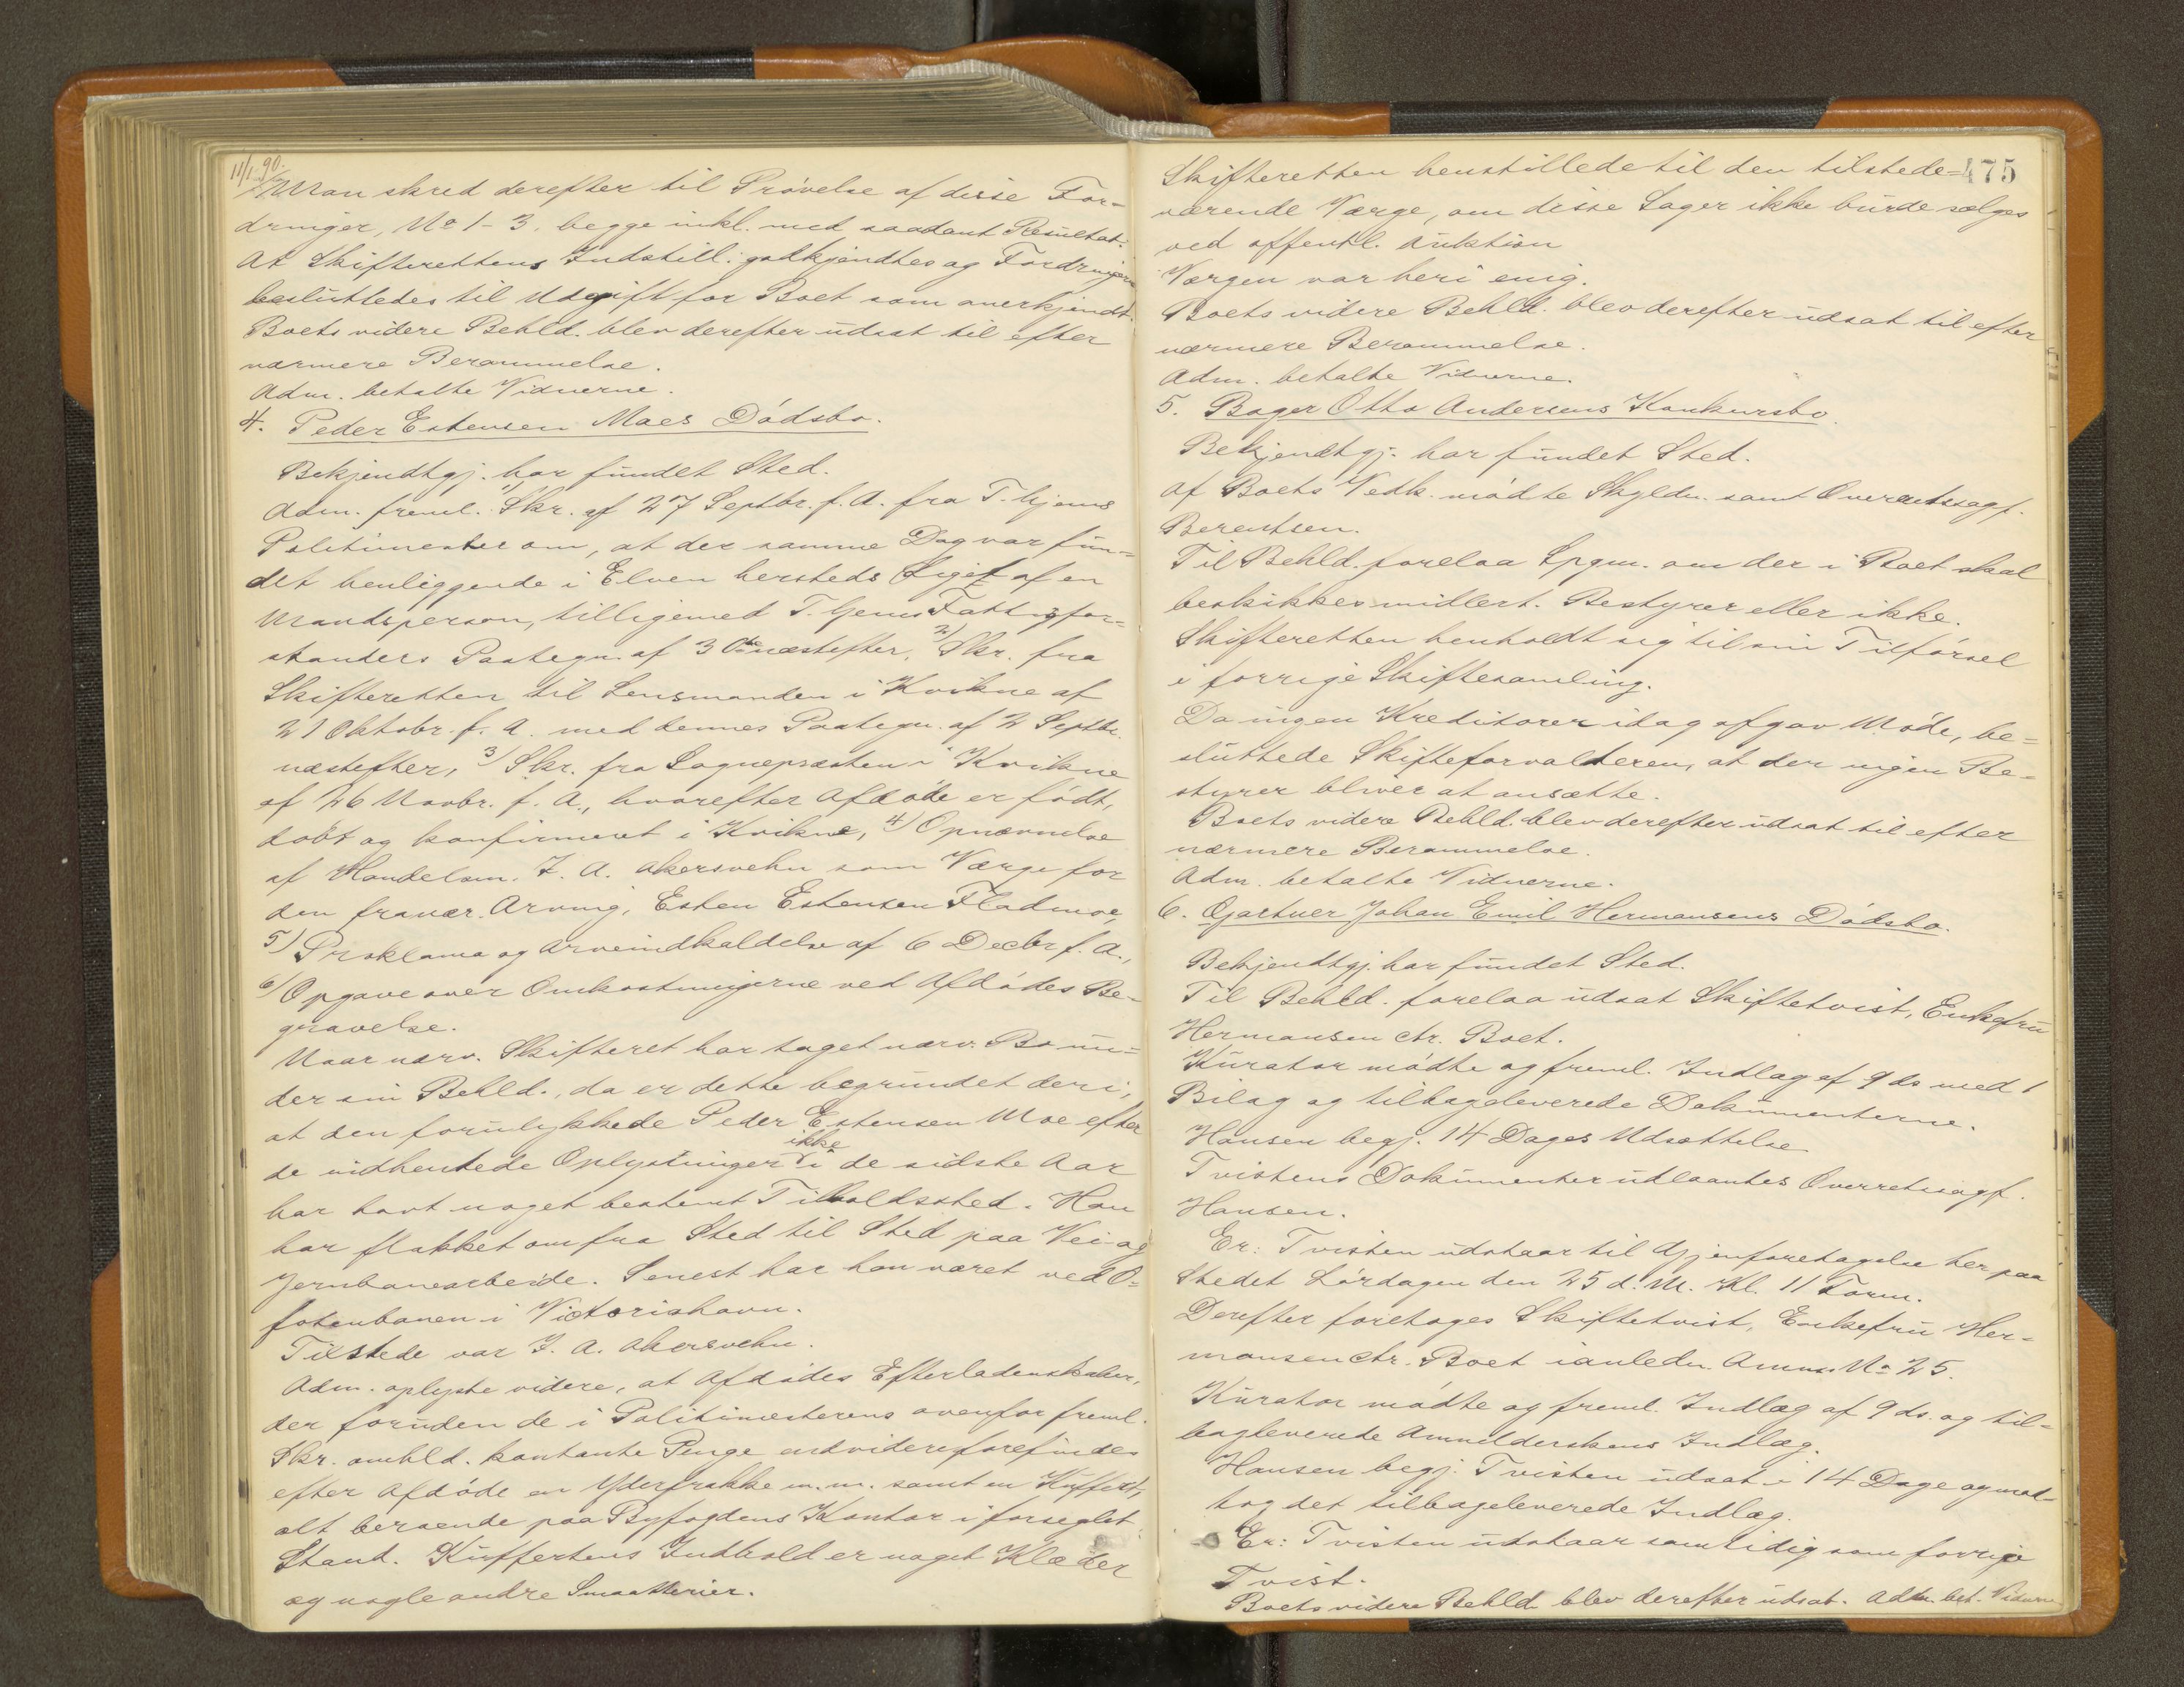 11/1 90.
Man skred derefter til Prøvelse af disse For-
dringer, No 1-3, begge inkl. med saadant Resultat:
At Skifterettens Indstill. godkjendtes og Fordringerne
besluttedes til Udgift for Boet som anerkjendt.
Boets videre Behld. blev derefter udsat til efter
nærmere Berammelse.
Adm. betalte Vidnerne.
4. Peder Estensen Moes Dødsbo.
Bekjendtgj. har fundet Sted.
Adm. freml. 1) Skr. af 27 Septbr. f. A. fra T.hjems
Politimester om, at der samme Dag var fun-
det henliggende i Elven hersteds Liget af en
Mandsperson, tilligemed T.hjems Fattigfor-
standers Paategn. af 30te næstefter, 2) Skr. fra
Skifteretten til Lensmanden i Kvikne af
21 Oktobr. f. A. med dennes Paategn. af 2 Septbr.
næstefter, 3) Skr. fra Sognepræsten i Kvikne
af 26 Novbr. f. A., hvorefter Afdøde er født,
døbt og konfirmeret i Kvikne, 4) Opnævnelse
af Handelsm. J. A. Akersvehn som Værge for
den fravær. Arving, Esten Estensen Fladmoe
5) Proklama og Arveindkaldelse af 6 Decbr f. A.,
6) Opgave over Omkostningerne ved Afdødes Be-
gravelse.
Naar nærv. Skifteret har taget nærv. Bo un-
der sin Behld., da er dette begrundet deri,
at den forulykkede Peder Estensen Moe efter
de indhentede Oplysninger ikke i de sidste Aar
har havt noget bestemt Tilholdssted. Han
har flakket om fra Sted til Sted paa Vei- og
Jernbanearbeide. Senest har han været ved O-
fotenbanen i Victoriahavn.
Tilstede var J. A. Akersvehn.
Adm. oplyste videre, at Afdødes Efterladenskaber,
der foruden de i Politimesterens ovenfor freml.
Skr. omhld. kontante Penge endvidere forefindes
efter Afdøde en Yderfrakke m.m. samt en Kuffert,
alt beroende paa Byfogdens Kontor i forseglet
Stand. Kuffertens Indhold er noget Klæder
og nogle andre Smaatterier.
475
Skifteretten henstillede til den tilstede-
værende Værge, om disse Sager ikke burde sælges
ved offentl. Auktion
Værgen var heri enig.
Boets videre Behld. blev derefter udsat til efter
nærmere Berammelse.
Adm. betalte Vidnerne.
5. Bager Otto Andersens Konkursbo.
Bekjendtgj. har fundet Sted.
Af Boets Vedk. mødte Skyldn. samt Overretssagf.
Berentsen.
Til Behld. forelaa Spgm. om der i Boet skal
beskikkes midlert. Bestyrer eller ikke.
Skifteretten henholdt sig til sin Tilførsel
i forrige Skiftesamling.
Da ingen Kreditorer idag afgav Møde, be-
sluttede Skifteforvalteren, at der ingen Be-
styrer bliver at ansætte.
Boets videre Behld. blev derefter udsat til efter
nærmere Berammelse.
Adm. betalte Vidnerne.
6. Gartner Johan Emil Hermansens Dødsbo.
Bekjendtgj. har fundet Sted.
Til Behld. forelaa udsat Skiftetvist, Enkefru
Hermansen ctr. Boet.
Kurator mødte og freml. Indlæg af 9 ds med 1
Bilag og tilbageleverede Dokumenterne.
Hansen begj. 14 Dages Udsættelse
Tvistens Dokumenter udlaantes Overretssagf.
Hansen.
Er: Tvisten udstaar til Gjenforetagelse her paa
Stedet Lørdagen den 25 d. M. Kl. 11 Form.
Derefter foretoges Skiftetvist, Enkefru Her-
mansen ctr. Boet ianledn. Anms. No 25.
Kurator mødte og freml. Indlæg af 9 ds. og til-
bageleverede Anmelderskens Indlæg.
Hansen begj. Tvisten udsat i 14 Dage og mod-
tog det tilbageleverede Indlæg.
Er: Tvisten udstaar samtidig som forrige
Tvist.
Boets videre Behld. blev derefter udsat. Adm. bet. Vidnerne